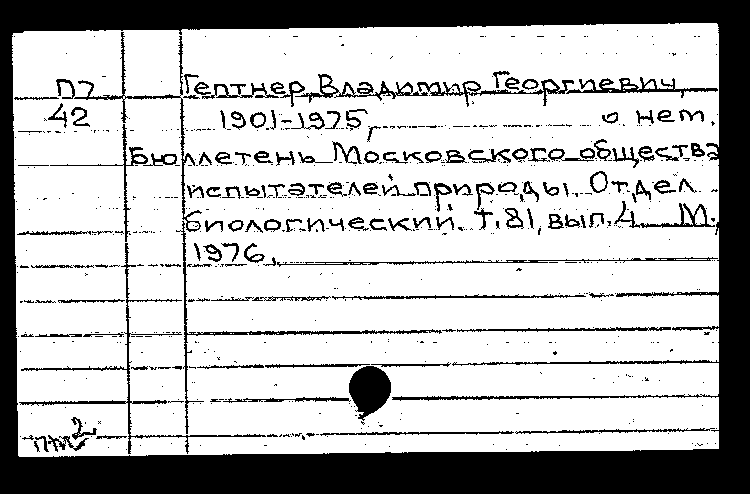 П7 Гептнер, Владимир Георгиевич,
42 1901-1975, о нем.
Бюллетень Московского общества
испытателей природы. Отдел
биологический. т. 81, вып. 4 М.,
1976.
2